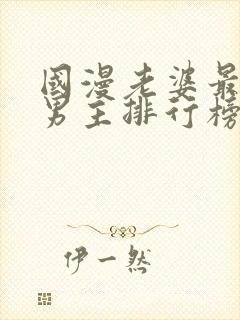 國漫老婆最
男主排行榜
伊一然